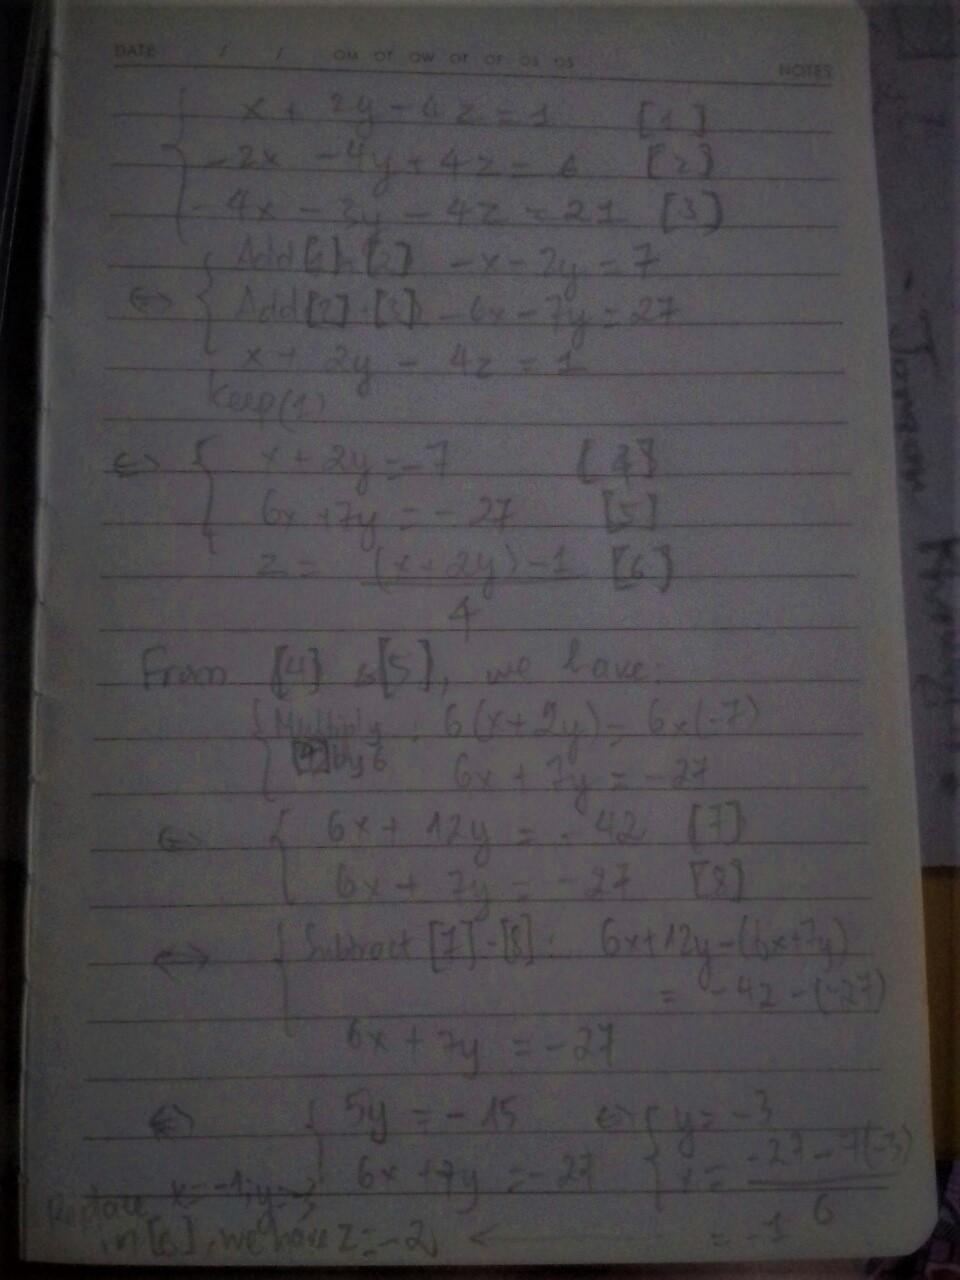 DATE / / OM OT OW OT OF OS OS
NOTES
x + 2y - 4z = 1 [1]
-2x - 4y + 4z = 6 [2]
-4x - 3y - 4z = 21 [3]
Add [1], [2] -x - 2y = 7
<=> Add [2] [3] -6x - 7y = 27
x + 2y - 4z = 1
keep (1)
<=> x + 2y = -7 [4]
6x + 7y = -27 [5]
z = (x + 2y) - 1 [6]
4
From [4] & [5], we have:
Multiply : 6(x + 2y) = 6x(-7)
[4] by 6 6x + 7y = -27
<=> 6x + 12y = -42 [7]
6x + 7y = -27 [8]
<=> Subtract [7] - [8]: 6x + 12y - (6x + 7y)
= -42 - (-27)
6x + 7y = -27
<=> 5y = -15 <=> y = -3
6x + 7y = -27 x = -27 - 7(-3)
6
Replace x = -1; y = -3
in [6], we have z = -2 <- = -1